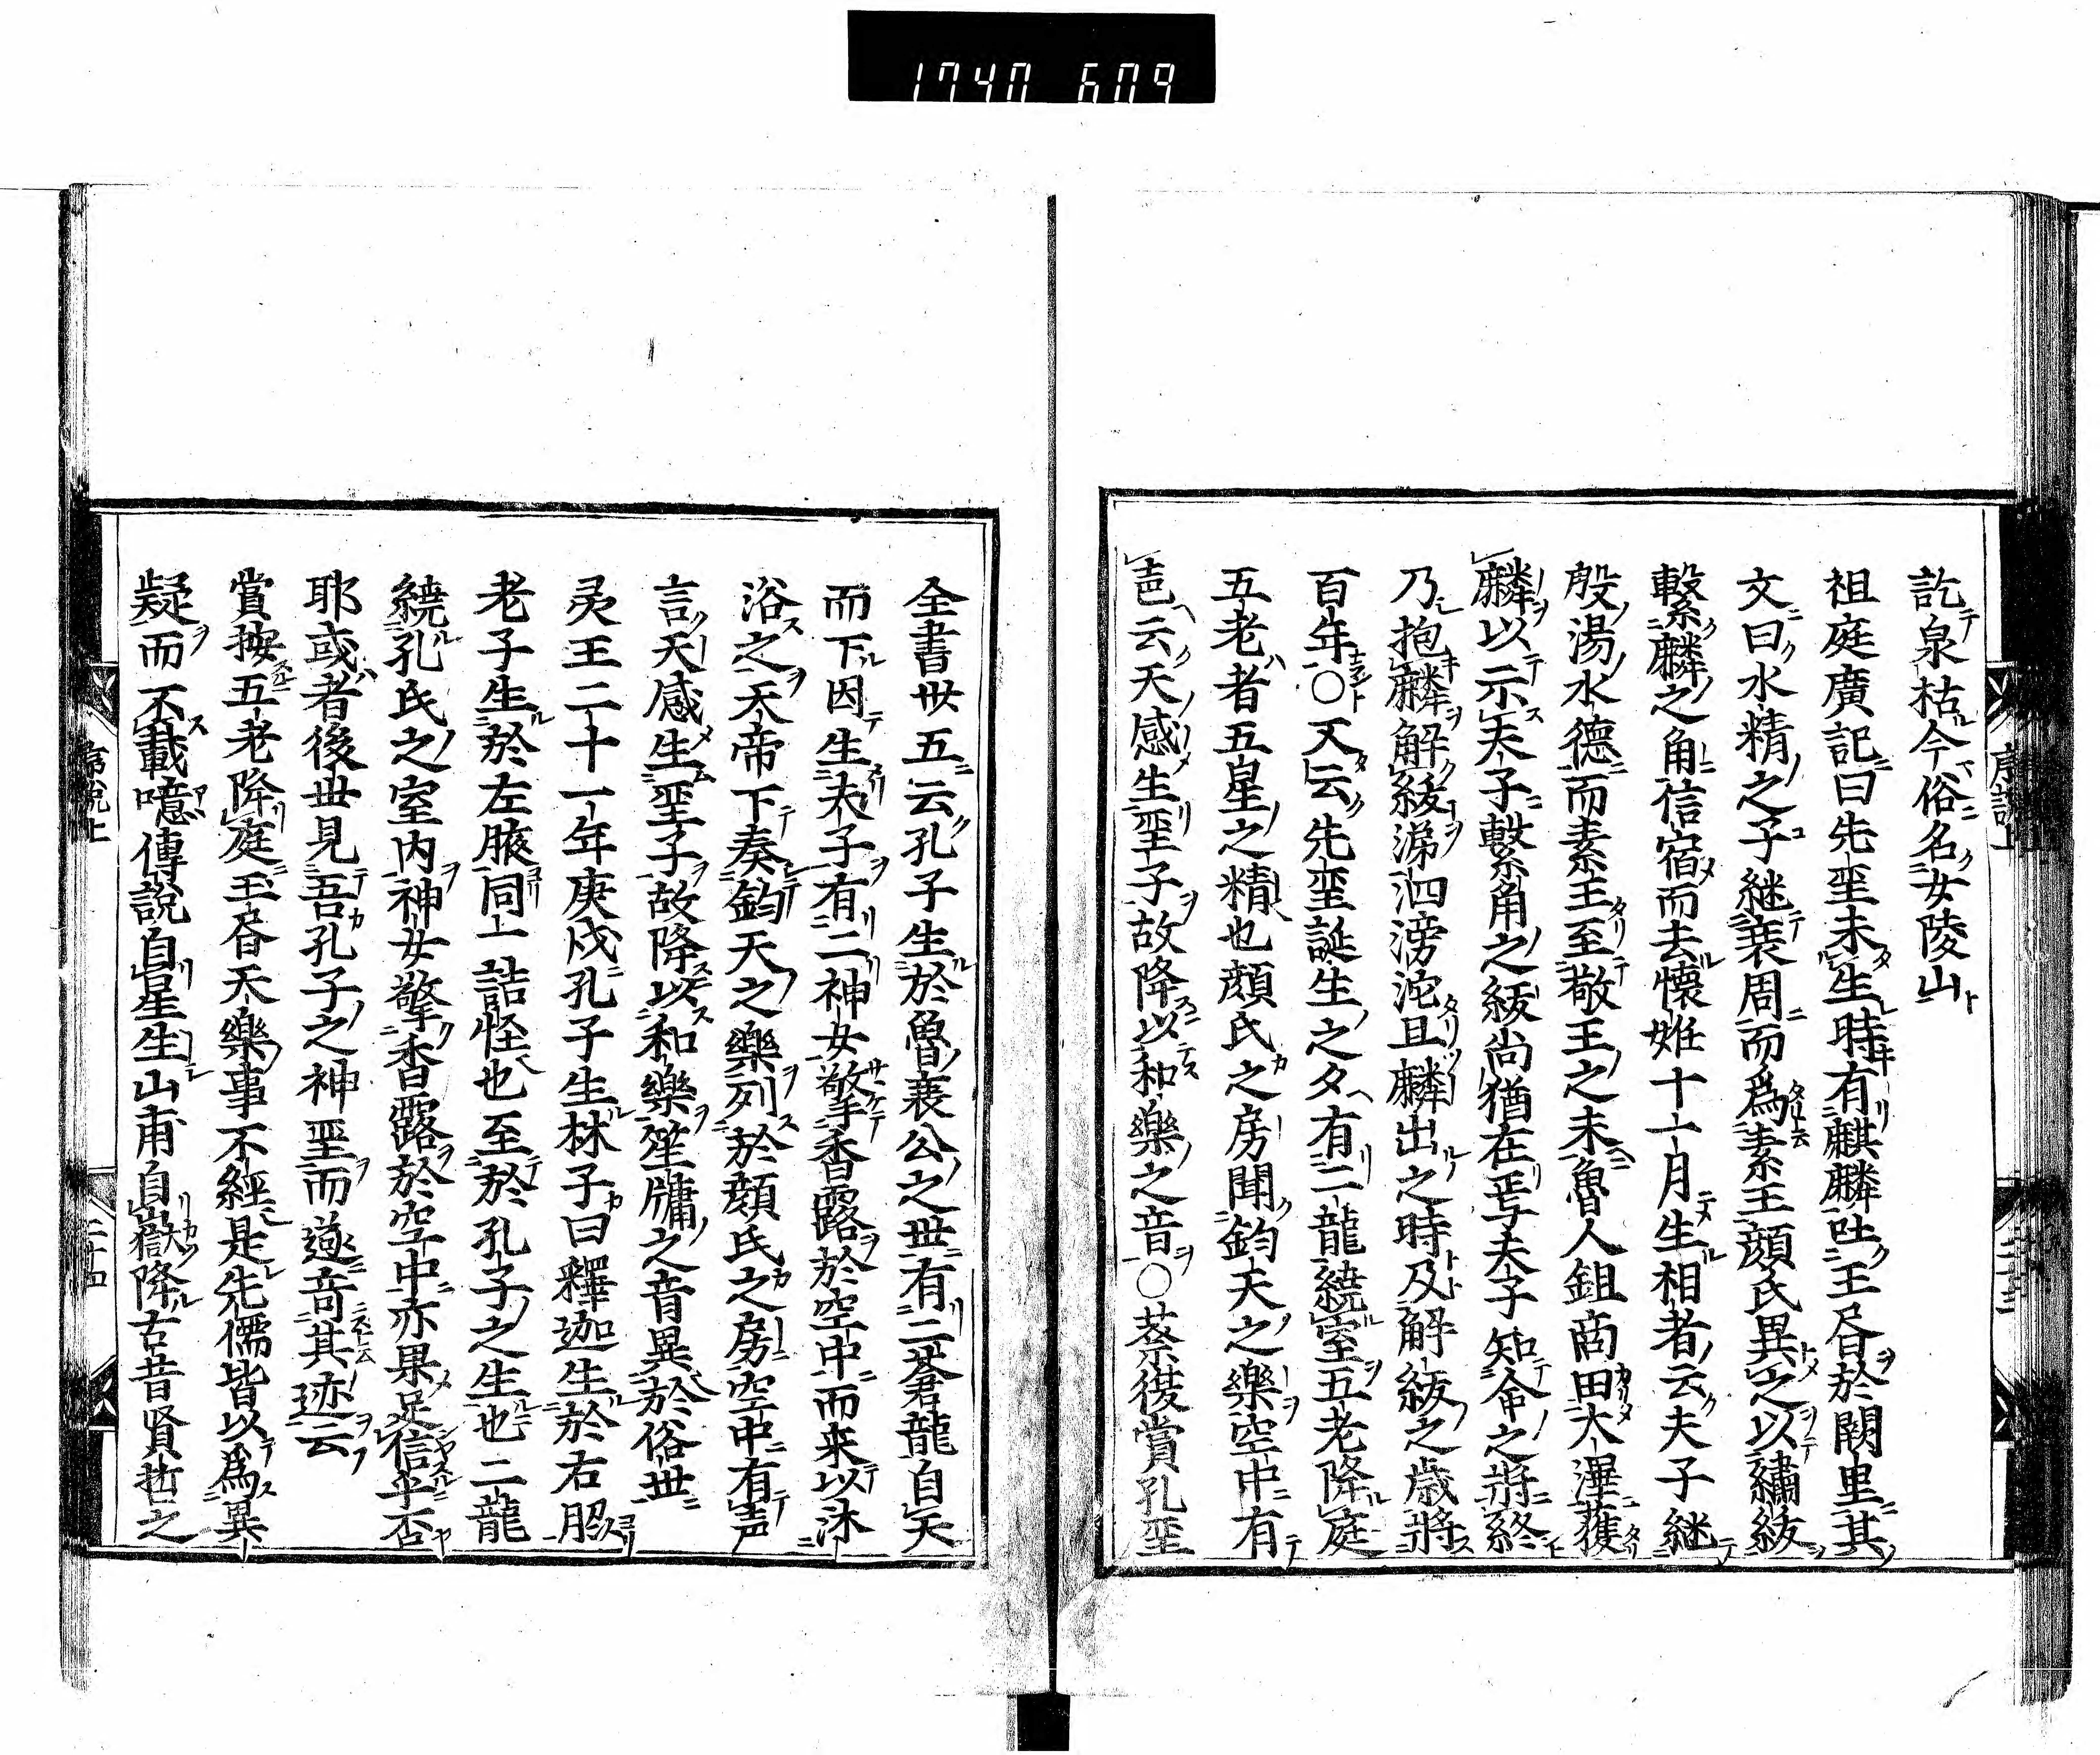 1740 609
訖泉枯今俗名女陵山
祖庭廣記曰先𦔻未生時有麒麟吐玉昏於闕里其
文曰水精之子継衰周而爲素王顔氏異之以繡紱
繫麟之角信宿而去懷姙十一月生相者云夫子継
殷湯水德而素王至敬王之末魯人鉏商田大澤獲
麟以示夫子繫角之紱尚猶在焉夫子知命之將終
乃抱麟解紱涕泗滂沱且麟出之時及解紱之歳將
百年〇又云先𦔻誕生之夕有二龍繞室五老降庭
五老者五星之精也顔氏之房聞鈞天之樂空中有
声云天感生𦔻子故降以和樂之音〇蔡復賞孔𦔻
全書丗五云孔子生於魯襄公之世有二蒼龍自天
而下因生夫子有二神女擎香露於空中而来以沐
浴之天帝下奏鈞天之樂列於顔氏之房空中有声
言天感生𦔻子故降以和樂笙牗之音異於俗世
灵王二十一年庚戌孔子生林子曰釋迦生於右脇
老子生於左腋同一詰怪也至於孔子之生也二龍
繞孔氏之室内神女擎香露於空中亦果足信乎否
耶或者後世見吾孔子之神𦔻而遂奇其迹云
賞按五老降庭玉昏天樂事不經是先儒皆以爲異
疑而不載噫傳説自星生山甫自嶽降古昔賢哲之
序説上